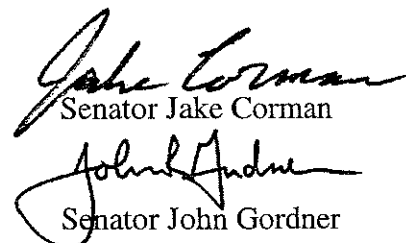 Jake Corman
Senator Jake Corman
John Gordner
Senator John Gordner